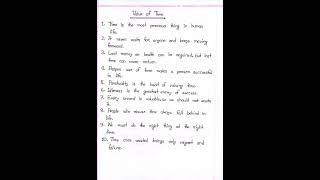 Value of Time
1. Time is the most precious thing in human
life.
2. It never waits for anyone and keeps moving
forward.
3. Lost money or health can be regained, but lost
time can never return.
4. Proper use of time makes a person successful
in life.
5. Punctuality is the habit of valuing time.
6. Laziness is the greatest enemy of success.
7. Every second is valuable, so we should not waste
it.
8. People who misuse time always fall behind in
life.
9. We must do the right thing at the right
time.
10. Time once wasted brings only regret and
failure.